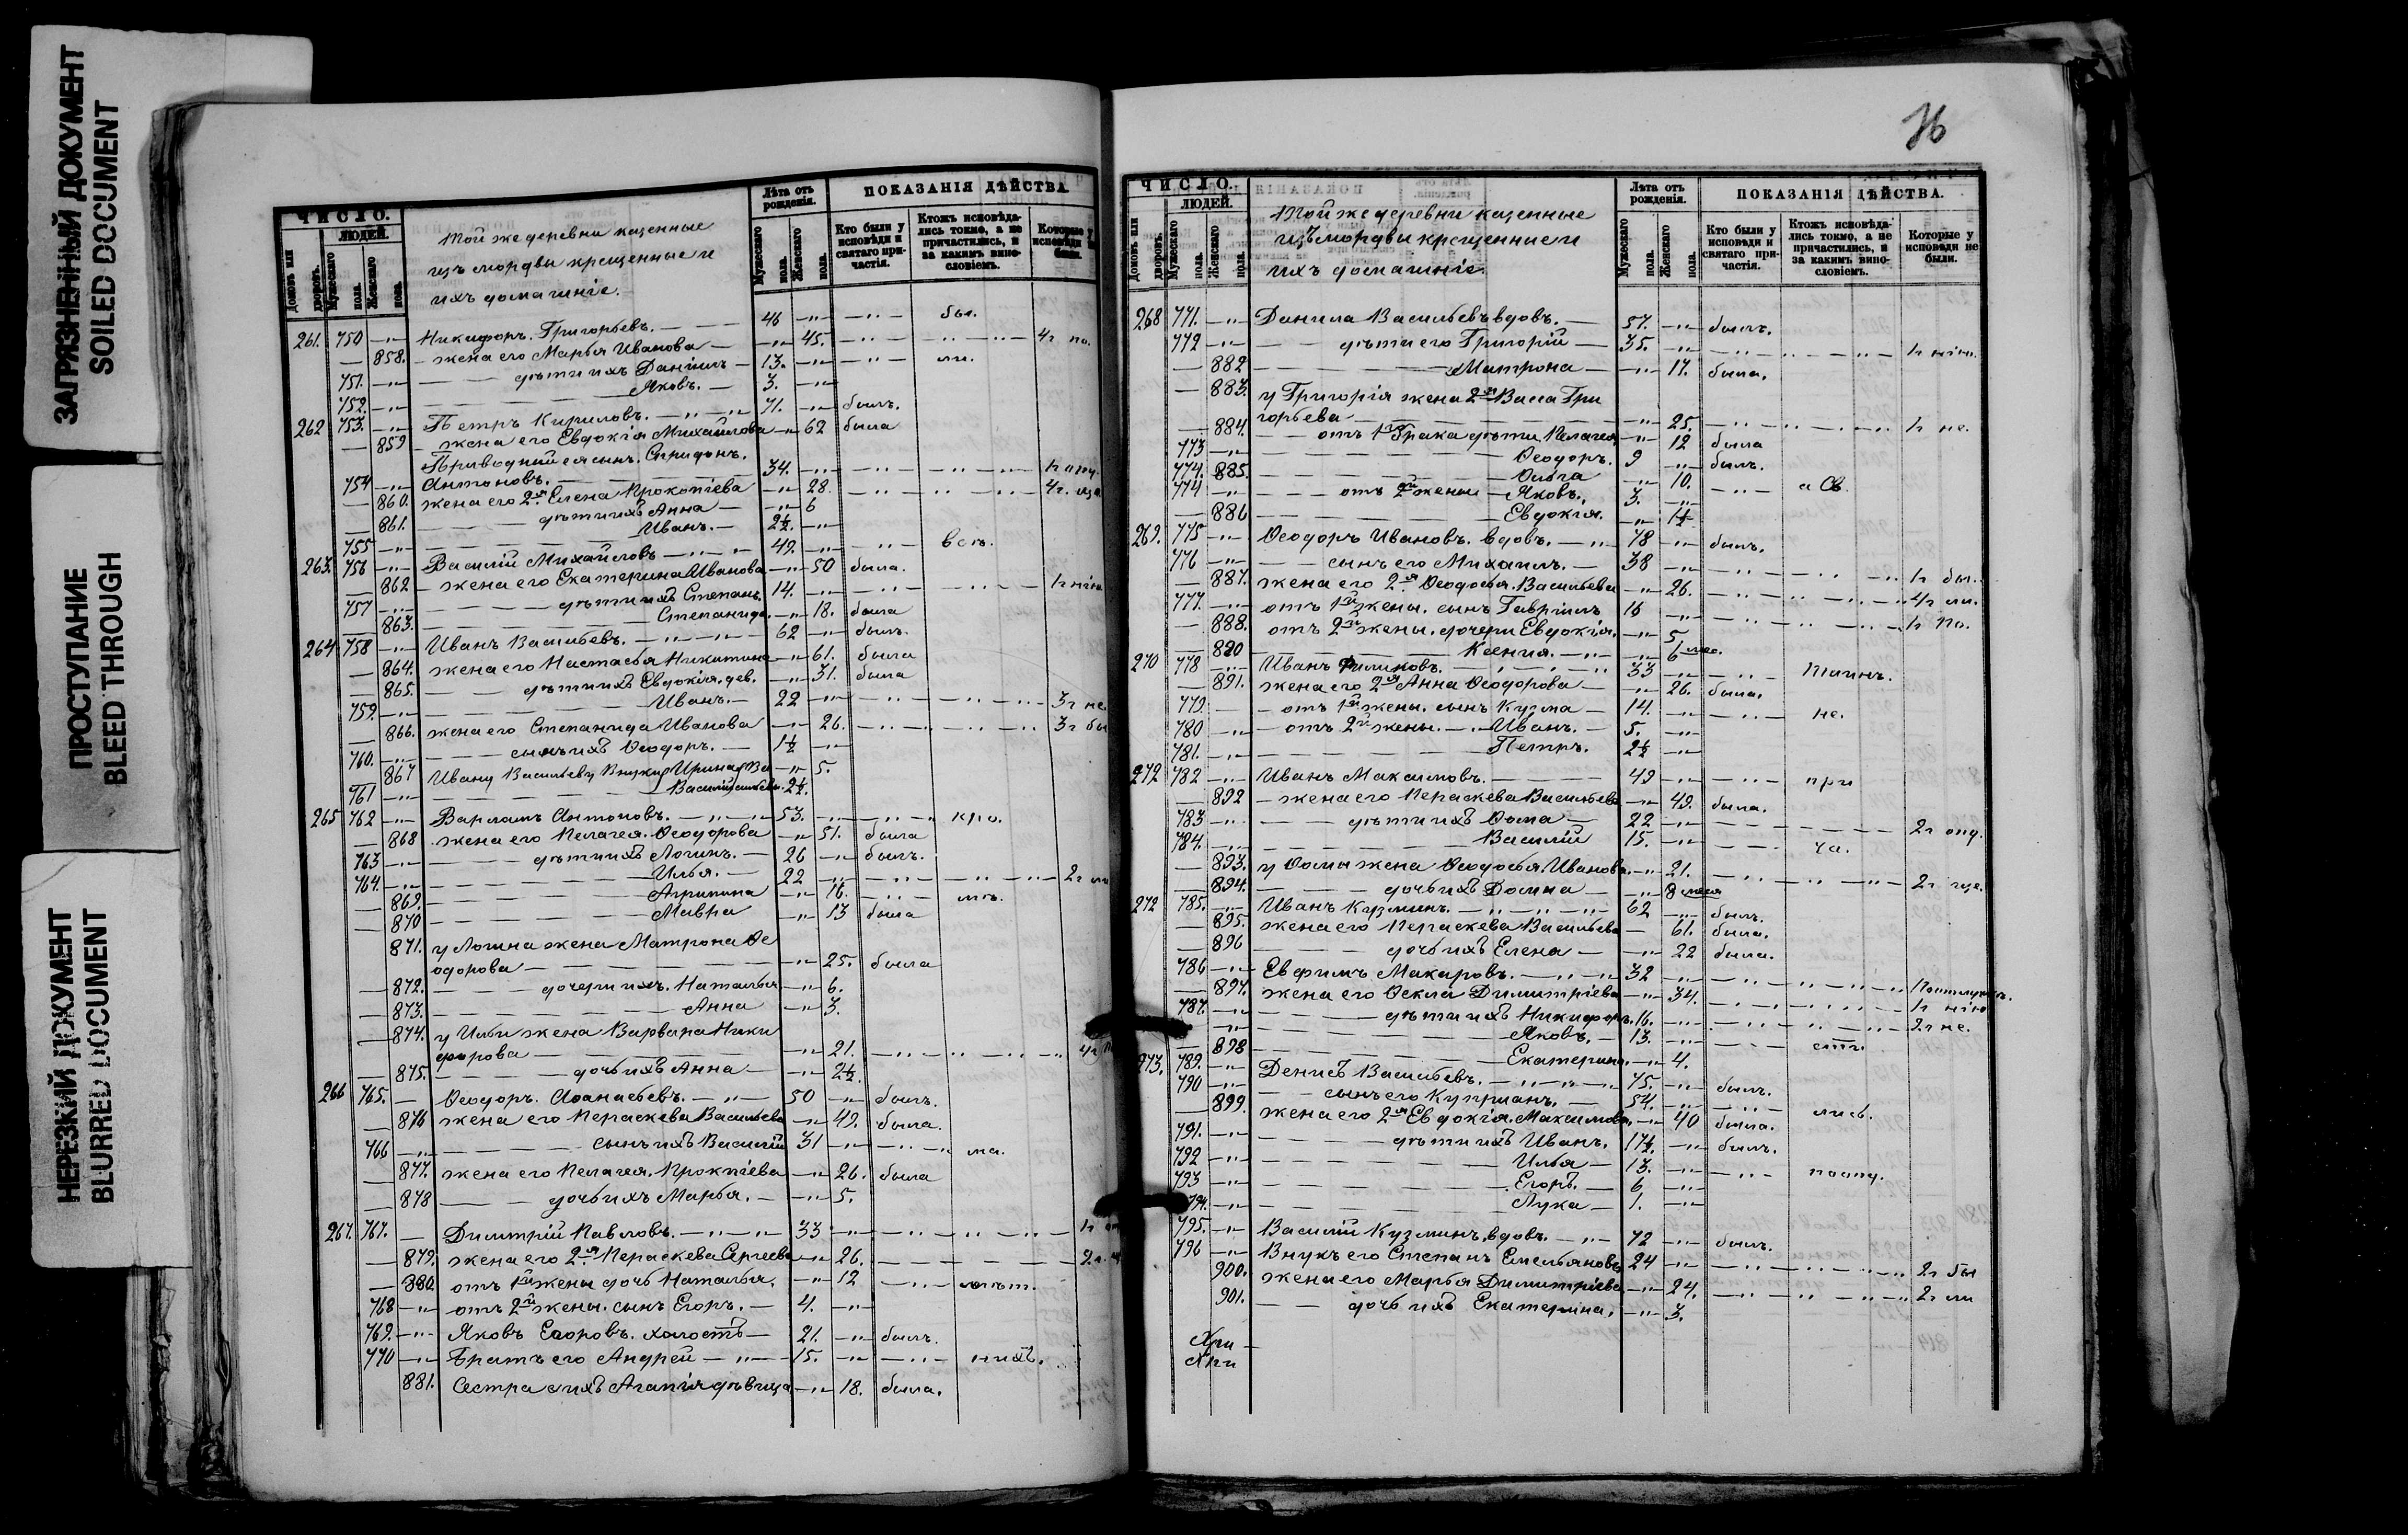 ЗАГРЯЗНЕННЫЙ ДОКУМЕНТ
SOILED DOCUMENT
ПРОСТУПАНИЕ
BLEED THROUGH
НЕРЕЗКИЙ ДОКУМЕНТ
BLURRED DOCUMENT
ЧИСЛО.
ЛЮДЕЙ.
Домовъ или дворовъ.
Мужескаго пола.
Женскаго пола.
Той же деревни казенные
изъ мордвы крещенные и
ихъ домашніе.
Лѣта отъ рожденія.
Мужескаго пола.
Женскаго пола.
ПОКАЗАНІЯ ДѢЙСТВА
Кто были у исповѣди и святаго при-частія.
Ктожъ исповѣда-лись токмо, а не причастились, и за какимъ вино-словіемъ.
Которые у исповѣди не были.
261. 750 Никифоръ Григорьевъ. 46 был.
858. жена его Марья Иванова 45. 4г по.
751. дѣти ихъ Даніилъ 13. ли.
752. Яковъ. 3.
262 753. Петръ Кириловъ. 71. былъ.
859 жена его Евдокія Михайлова 62 была
Приводный ея сынъ Спиридонъ
754 Антоновъ. 34.
860. жена его 2я Елена Прокопіева 28. 4г.
861. дѣти ихъ Анна 6
755 Иванъ. 2½.
263. 756 Василій Михайловъ 49. всѣ.
862 жена его Екатерина Иванова 50 была.
757 дѣти ихъ Степанъ 14.
863. Степанида. 18. была
264 758 Иванъ Васильевъ. 62 былъ.
864. жена его Настасья Никитина 61. была
865. дѣти ихъ Евдокія, дев. 31. была
759. Иванъ. 22 3г не
866. жена его Степанида Иванова 26. 3г бы
760. сынъ ихъ Ѳеодоръ. 1½
867 Ивану Васильеву Внуки Ирина Ва 5.
761 Василій сильевы. 2½.
265 762 Варламъ Антоновъ. 53. кро.
868 жена его Пелагея Ѳеодорова 51. была
763 дѣти ихъ Логинъ. 26 былъ.
764. Илья. 22 2г
869. Агрипина 16. мѣ.
870 Мавра 13 была
871. у Логина жена Матрона Ѳе
одорова 25. была
872. дочери ихъ. Наталья 6.
873. Анна 3.
874. у Ильи жена Варвара Ники
форова 21. 4г
875. дочь ихъ Анна 2½.
266 765. Ѳеодоръ Аѳанасьевъ. 50 былъ.
876 жена его Пераскева Васильева 49. была.
766 сынъ ихъ Василій 31 ма.
877. жена его Пелагея Прокпіева 26. была
878 дочь ихъ Марья. 5.
267. 767. Димитрій Павловъ. 33
879. жена его 2я Пераскева Сергѣева 26. 2г
880. отъ 1й жены дочь Наталья. 12
768 отъ 2й жены сынъ Егоръ. 4.
769. Яковъ Егоровъ. холостъ 21. былъ.
770 Братъ его Андрей 15. нихъ.
881. Сестра ихъ Агапія дѣвица 18. была.
76
ЧИСЛО.
ЛЮДЕЙ.
Домовъ или дворовъ.
Мужескаго пола.
Женскаго пола.
Той же деревни казенные
изъ мордвы крещенные и
ихъ домашніе.
Лѣта отъ рожденія.
Мужескаго пола.
Женскаго пола.
ПОКАЗАНІЯ ДѢЙСТВА.
Кто были у исповѣди и святаго при-частія.
Ктожъ исповѣда-лись токмо, а не причастились, и за какимъ вино-словіемъ.
Которые у исповѣди не были.
268 771. Данила Васильевъ вдовъ. 57. былъ.
772 дѣти его Григорій 35.
882 Матрона 17. была.
883. у Григорія жена 2я Васса Гри
горьева 25. не.
884. отъ 1го брака дѣти Пелагея 12 была
773 Ѳеодоръ. 9 былъ.
774. 885. Ольга 10.
774 отъ 2й жены Яковъ. 3.
886 Евдокія. 1½
269. 775 Ѳеодоръ Ивановъ. вдовъ. 78 былъ.
776 сынъ его Михаилъ. 38 бы.
887. жена его 2я Ѳеодосья Васильева 26. 4г ли.
777. отъ 1й жены сынъ Гавріилъ 16 по.
888. отъ 2й жены дочери Евдокія. 5.
880 Ксенія. 6 мес.
270 778 Иванъ Филиповъ. 33
891. жена его 2я Анна Ѳеодорова 26. была.
779 отъ 1й жены сынъ Кузма 14. не.
780 отъ 2й жены. Иванъ. 5.
781. Петръ. 2½
272 782 Иванъ Максимовъ. 49 при
892 жена его Пераскева Васильева 49. была.
783 дѣти ихъ Ѳома 22 2г
784. Василій 15. ча.
893. у Ѳомы жена Ѳеодосья Иванова 21. 2г
894. дочь ихъ Домна 8 меся
272 785. Иванъ Кузминъ. 62 былъ.
895. жена его Пераскева Васильева 61. была.
896 дочь ихъ Елена 22 была.
786 Евфимъ Макаровъ. 32
897. жена его Ѳекла Димитріева 34.
787. дѣти ихъ Никифоръ. 16. 2г не.
Яковъ. 13.
898 Екатерина 4.
273. 789. Денисъ Васильевъ. 75. былъ.
790 сынъ его Купріанъ. 54.
899. жена его 2я Евдокія Максимова 40 была.
791. дѣти ихъ Иванъ. 17½. былъ.
792 Илья 13.
793 Егоръ. 6
794. Лука 1.
795. Василій Кузминъ, вдовъ. 72 былъ.
796 Внукъ его Степанъ Емельяновъ 24 2г бы
900. жена его Марья Димитріева 24. 2г ли
901. дочь ихъ Екатерина. 3.